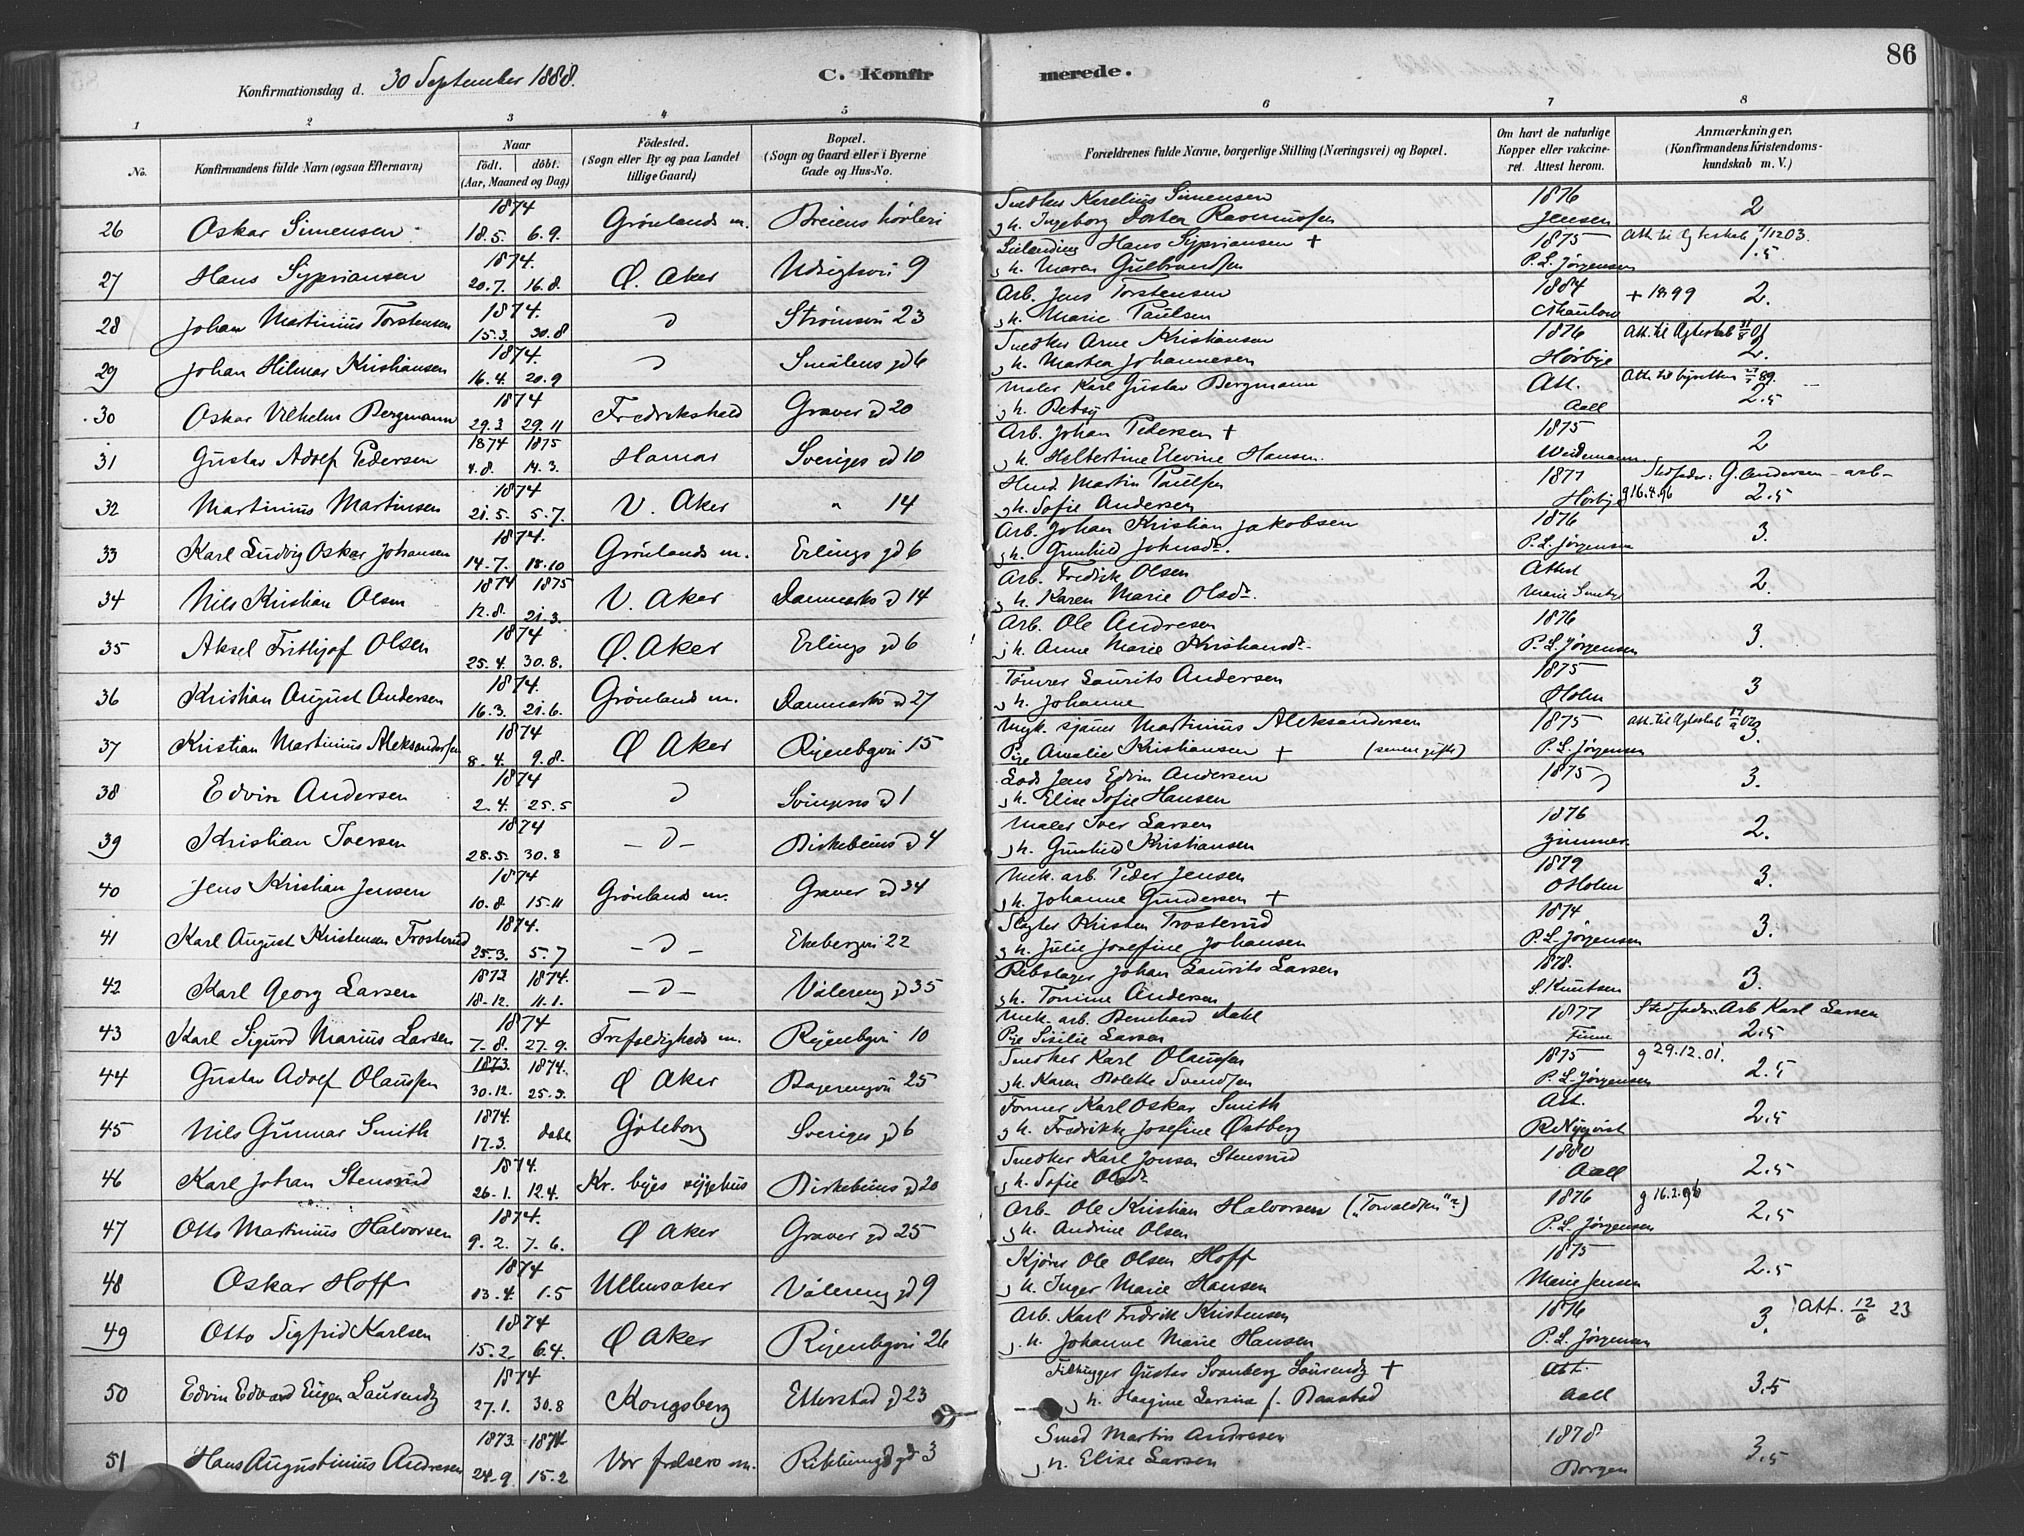 86
Konfirmationsdag d. 30 September 1888.
C. Konfirmerede.
1 2 3 4 5 6 7 8
No.
Konfirmandens fulde Navn (ogsaa Efternavn)
Naar
födt. döbt.
(Aar, Maaned og Dag)
Födested.
(Sogn eller By og paa Landet tillige Gaard)
Bopæl.
(Sogn og Gaard eller i Byerne Gade og Hus-No.
Forældrenes fulde Navne, borgerlige Stilling (Næringsvei) og Bopæl.
Om havt de naturlige Kopper eller vaccineret. Attest herom.
Anmærkninger.
(Konfirmandens Kristendomskundskab m. V.)
26 Oskar Simensen 1874 18.5. 6.9. Grönlands m. Snedker Karelius Simensen 1876 2
gh. Ingeborg Dortea Rasmussen Jensen
27 Hans Syprianssen 1874. 20.7. 16.8. Ø. Aker Udsigtsvei 9 Hans Syprianssen + 1875 Att til Ægteskab 1/12 03.
gh. Maren Gulbrandsen P. L. Jørgensen 1.5
28 Johan Martinius Torstensen 1874. 15.3. 30.8 Strömsvei 23 Arb. Jens Torstensen 1884 + 1899 2.
gh. Marie Paulsen
29 Johan Hilmar Kristiansen 1874. 16.4. 20.9 Smålens gd 6 Snedker Arne Kristiansen 1876 Att. til Ægteskab
gh. Martea Johannesen Hørbye 2.
30 Oskar Vilhelm Bergmann 1874 29.3 29.11 Fredrikshald Graver gd 20 Maler Karl Gustav Bergmann Att.
gh. Betsy Aall 2.5
31 Gustav Adolf Pedersen 1874 1875 4.8. 14.3. Hamar Sveriges gd 10 Arb. Johan Pedersen + 1875 2
gh. Helbertine Elevine Hansen. Weidemann
32 Martinius Martinsen 1874 21.5. 5.7. V. Aker " 14 Martin Paulsen 1877 Stedfader: G. Andersen - arb-
gh. Sofie Andersen Hørbye g 16.4.96 2.5
33 Karl Ludvig Oskar Johansen 1874. 14.7. 18.10 Grönlands m. Erlings gd 6 Arb. Johan Kristian Jakobsen 1876 3.
gh. Gunhild Johnsdr. P. L. Jørgensen
34 Nils Kristian Olsen 1874 1875 12.8. 21.3. V. Aker Danmarks gd 14 Arb. Fredrik Olsen Attest 2.
gh. Karen Marie Olsdr. Marie Smeby
35 Aksel Frithjof Olsen 1874 25.4. 30.8. Ø. Aker Erlings gd 6 Arb. Ole Andresen 1876 3.
gh. Anne Marie Kristiansdr. P. L. Jørgensen
36 Kristian August Andersen 1874. 16.3. 21.6. Grönland m. Danmarks gd 27 Tömrer Laurits Andersen 1875 3
gh. Johanne Holm
37 Kristian Martinius Aleksandersen 1874 8.4. 9.8. Ø Aker Ryenbgvei 15 Martinius Aleksandersen 1875 Att. til Ægteskab 3.
Pige Amalie Kristiansen + (senere gift) P. L. Jørgensen
38 Edvin Andersen 1874 2.4. 25.5 Svingens gd 1 Lods Jens Edvin Andersen 1875 3.
gh. Elise Sofie Hansen
39 Kristian Iversen 1874 28.5. 30.8 Birkebeins gd 4 Maler Iver Larsen 1876 2.
gh. Gunhild Kristiansen Zimmer
40 Jens Kristian Jensen 1874 10.8 15.11 Grönlands m. Graver gd 34 Mek. arb. Peder Jensen 1879 3.
gh. Johanne Gundersen + O Holm
41 Karl August Kristensen Trosterud 1874. 25.3. 5.7 Ekebergvei 22 Slagter Kristen Trosterud 1874 3.
gh. Julie Josefine Johansen P. L. Jørgensen
42 Karl Georg Larsen 1873 1874. 18.12. 11.1. Vålereng gd 35 Rebslager Johan Laurits Larsen 1878. 3.
gh. Tomine Andersen S. Knutsen
43 Karl Sigurd Marius Larsen 1874 7.8. 27.9. Trefoldigheds m. Ryenbgvei 10 Mek. arb. Bernhard Dahl 1877 Stedfader: Arb Karl Larsen
Pige Sisilie Larsen Finne 2.5
44 Gustav Adolf Olaussen 1873. 1874. 30.12. 25.3. Ø Aker 25 Snedker Karl Olaussen 1875 g 29.12.01.
gh. Karen Bolette Svendsen P. L. Jørgensen 2.5
45 Nils Gunnar Smith 1874. 17.3. Göteborg Sveriges gd 6 Former Karl Oskar Smith Att. 2.5
gh. Fredrikke Josefine Østberg
46 Karl Johan Stensrud 1874. 26.1. 12.4. Kr. byes sygehus Birkebeins gd 20 Snedker Karl Jonson Stensrud 1880 2.5
gh. Sofie Olsdr Aall
47 Otto Martinius Halvorsen 1874. 9.2. 7.6. Ø Aker Graver gd 25 Arb. Ole Kristian Halvorsen ("Torvaldsen"?) 1876 g 16.2.96
gh. Andrine Olsen P. L. Jørgensen 2.5
48 Oskar Hoff 1874 13.4. 1.5 Ullensaker Vålereng gd 9 Kjörer Ole Olsen Hoff 1875 2.5
gh. Inger Marie Hansen Marie Jensen
49 Otto Sigfrid Karlsen 1874 15.2. 6.4. Ø Aker Ryenbgvei 26 Arb. Karl Fredrik Kristensen 1876 3. Att. 12/6 23
gh. Johanne Marie Hansen P. L. Jørgensen
50 Edvin Edvard Eugen Laurendz 1874 27.1. 30.8 Kongsberg Etterstad gd 23 Filhugger Gustav Svanberg Laurendz + Att. 3.5
gh. Hagine Larsine f. Baastad Aall
51 Hans Augustinius Andresen 1873. 1874 24.9. 15.2 Vor frelsers m. gd 3 Smed Martin Andresen 1878 3.5
gh. Elise Larsen Borgen